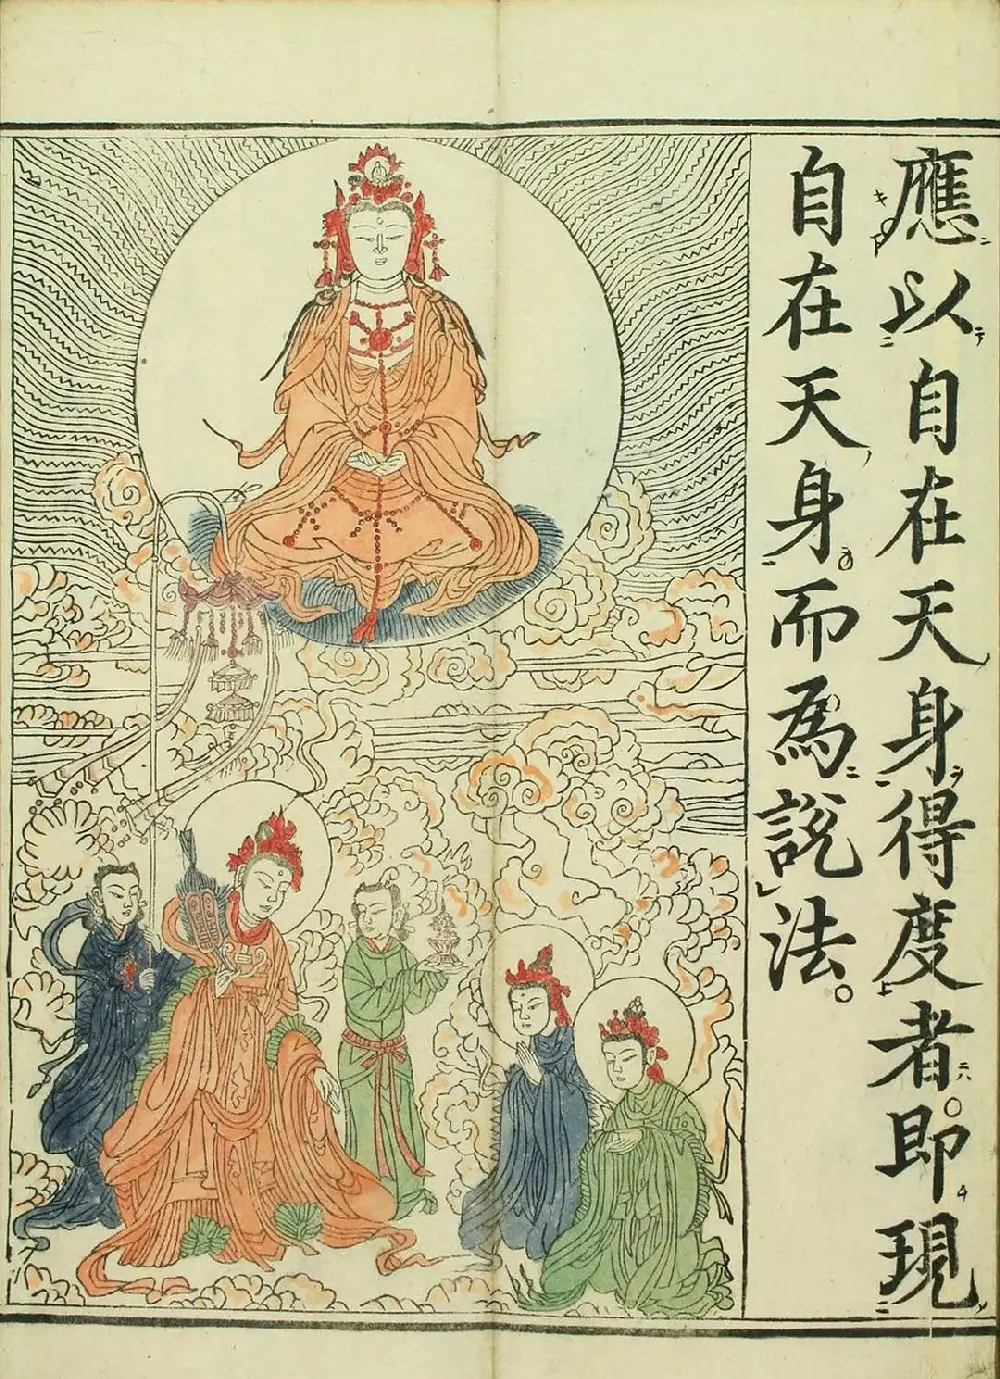 應以自在天身得度者即現
自在天身而為說法。